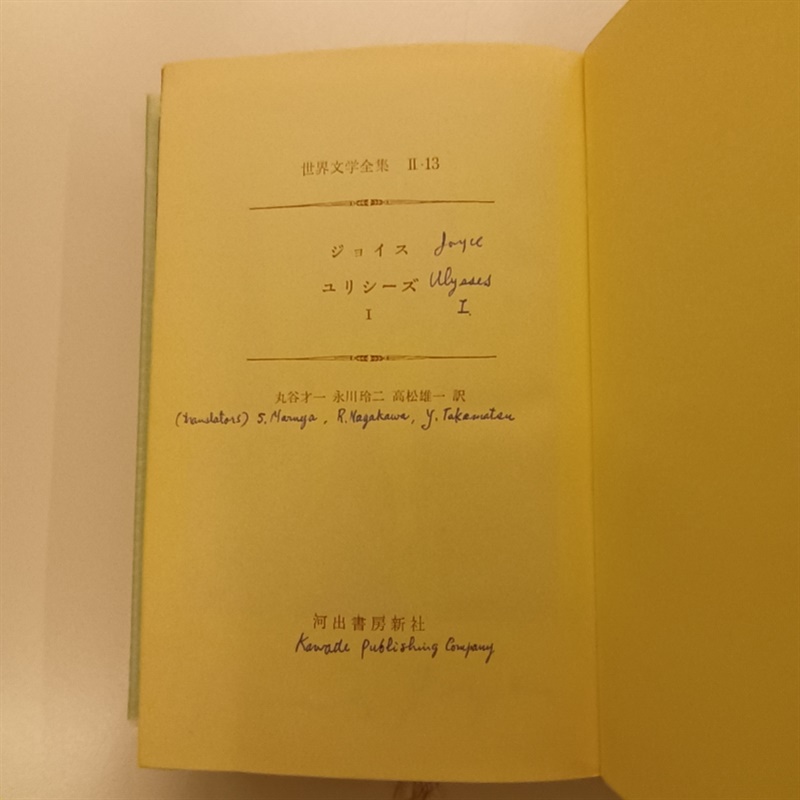 世界文学全集 II-13
ジョイス Joyce
ユリシーズ Ulysses
I I.
丸谷才一 永川玲二 高松雄一 訳
(translators) S. Maruya, R. Nagakawa, Y. Takamatsu
河出書房新社
Kawade Publishing Company